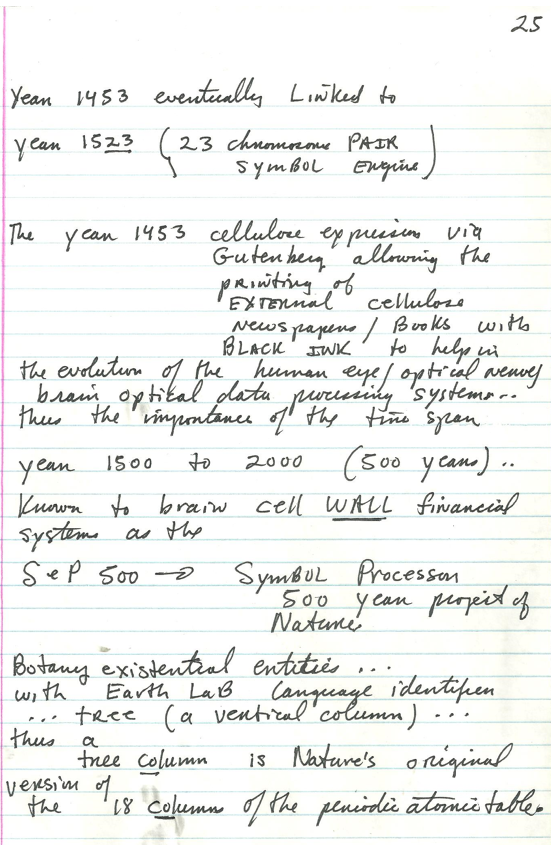 25
Year 1453 eventually Linked to
year 1523 (23 chromosome PAIR
SYMBOL Engine)
The year 1453 cellulose expression via
Gutenberg allowing the
printing of
EXTERNAL cellulose
Newspapers / Books with
BLACK INK to help in
the evolution of the human eye / optical nerves
brain optical data processing systems...
thus the importance of the time span
year 1500 to 2000 (500 years)..
Known to brain cell WALL financial
systems as the
S & P 500 → SYMBOL Processor
500 year project of
Nature
Botany existential entities ...
with Earth LaB Language identifier
... tree (a vertical column) ...
thus a
tree column is Nature's original
version of
the 18 columns of the periodic atomic table.